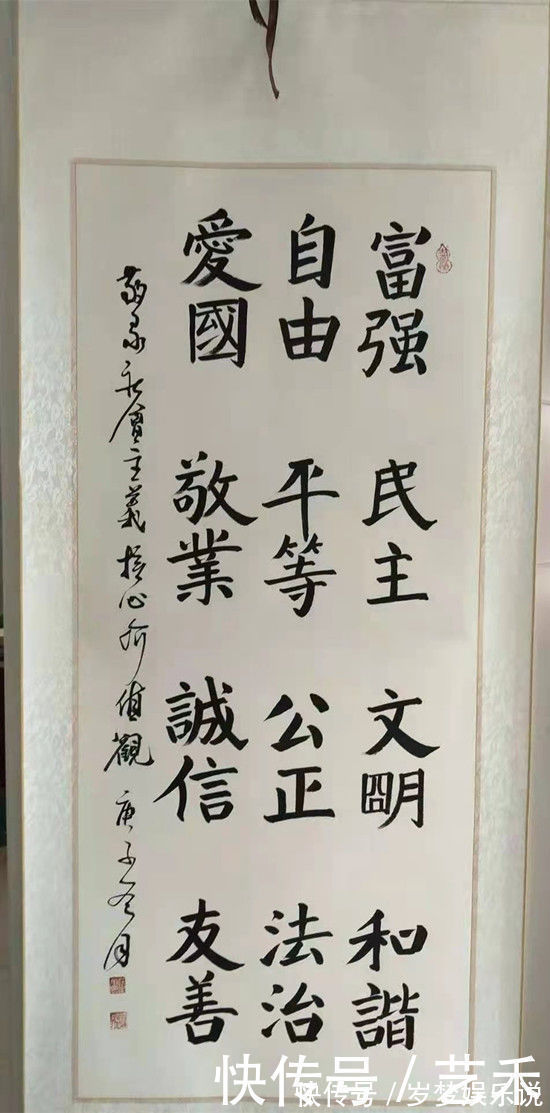 富强 民主 文朙 和諧
自由 平等 公正 法治
愛國 敬業 誠信 友善
敬录社會主義核心价值觀 庚子冬月
快传号 /
快传号 / 岁梦娱乐说